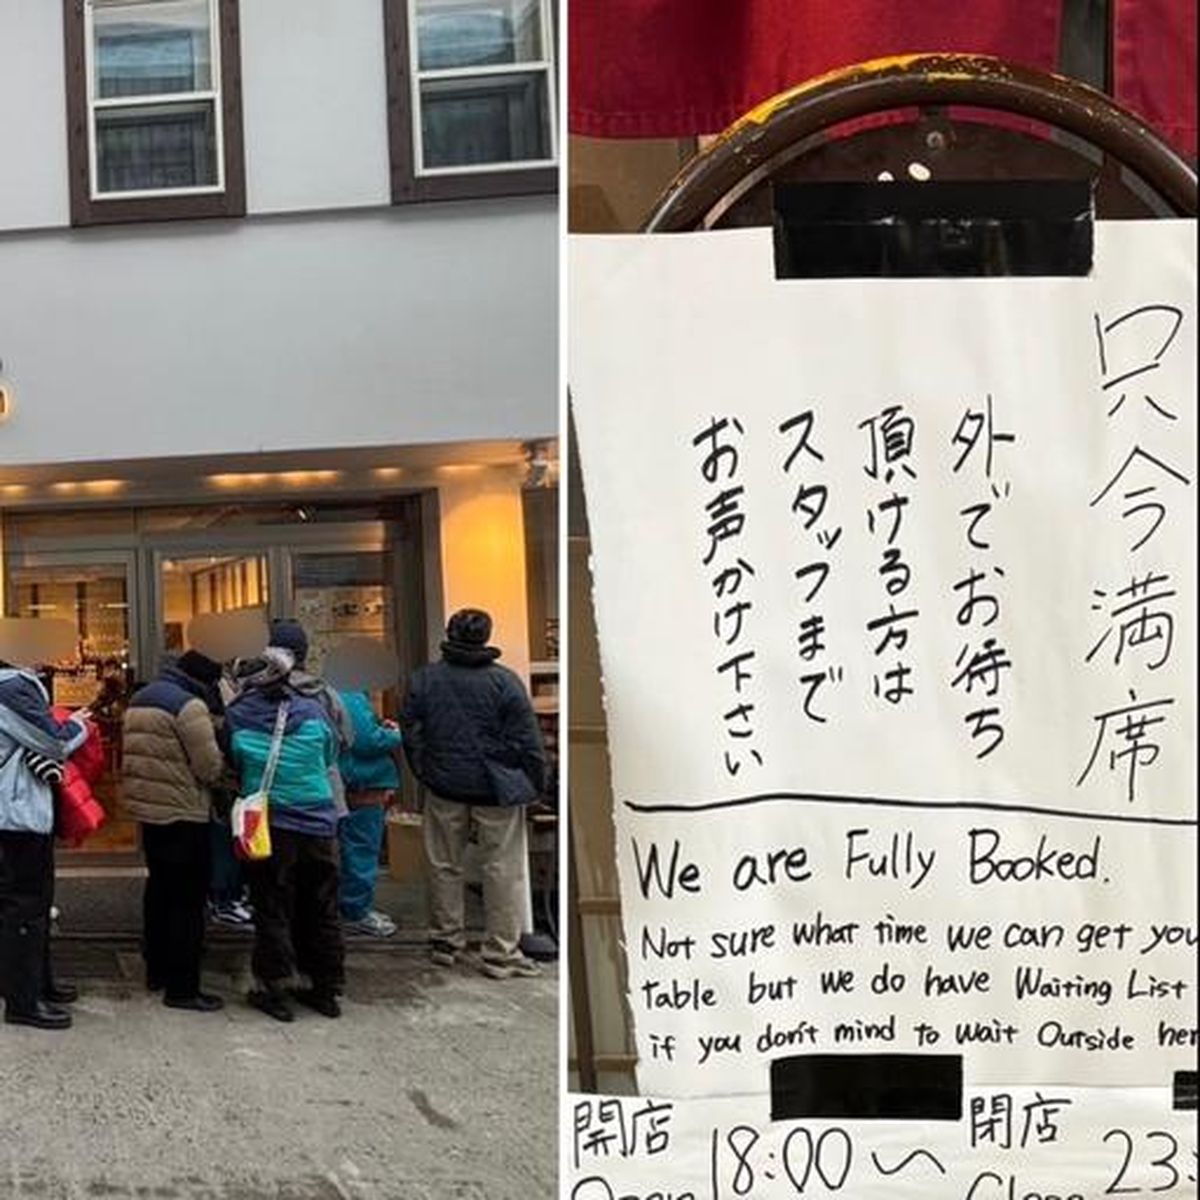 只今満席
外でお待ち
頂ける方は
スタッフまで
お声かけ下さい
We are Fully Booked.
Not sure what time we can get you
table but we do have Waiting List
if you don't mind to wait Outside
開店 18:00〜 閉店 23:
Open